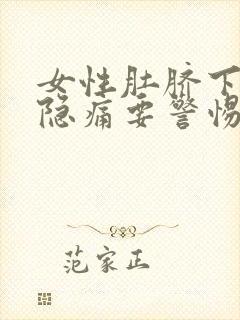 女性肚脐下
隐痛要警惕
范家正